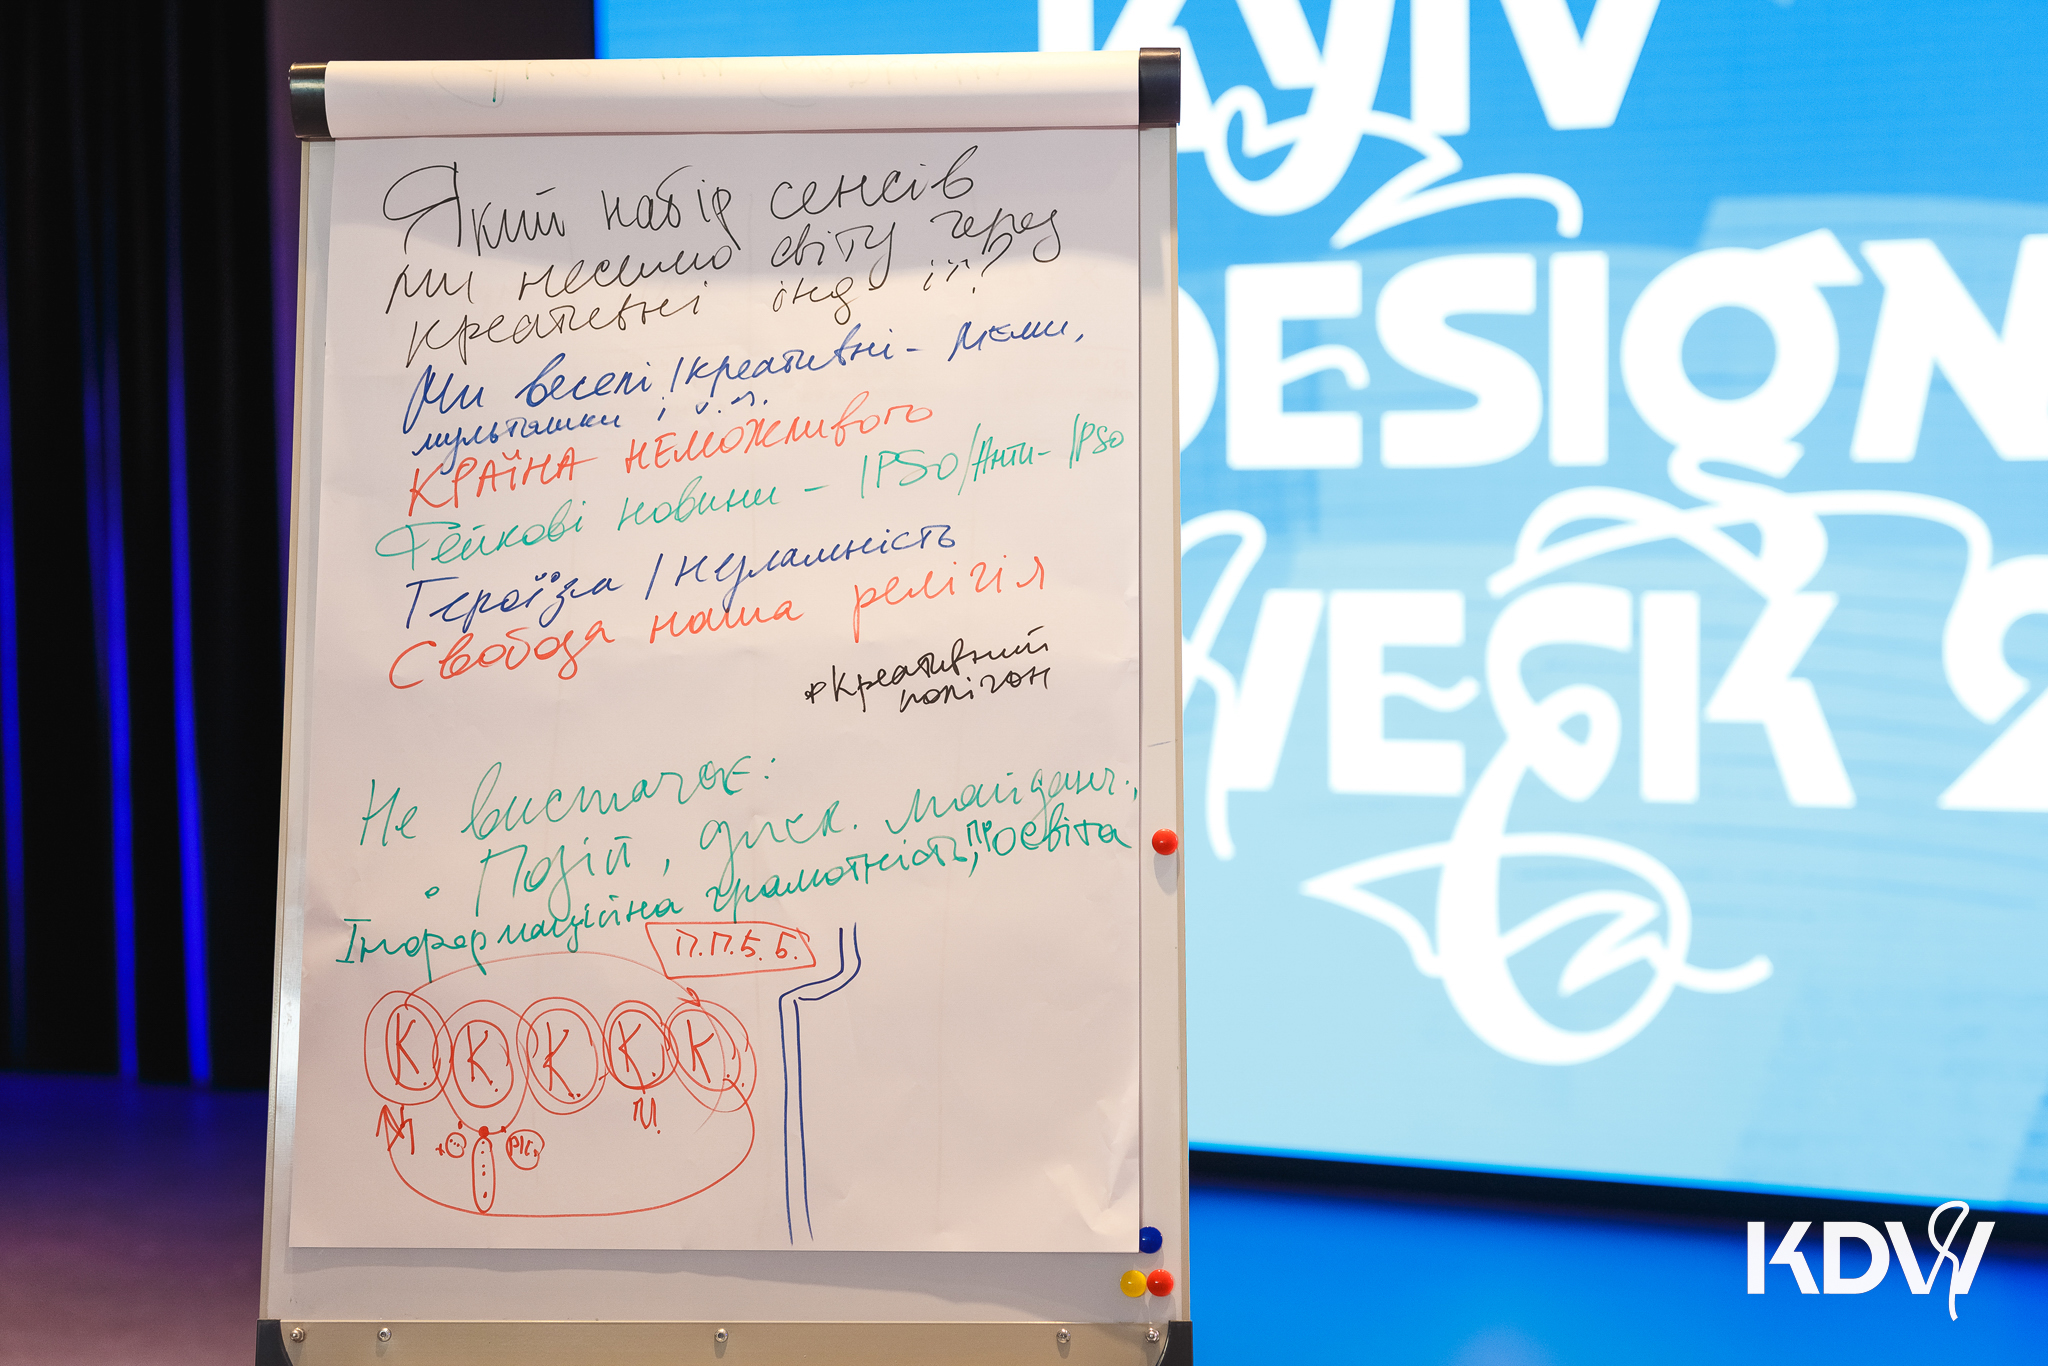 Який набір сенсів
ми несемо світу через
креативні інд-ії?
Ми веселі/креативні - меми,
мультяшки і т.п.
КРАЇНА НЕМОЖЛИВОГО
Фейкові новини - IPSO/Анти-IPSO
Героїзм/Незламність
Свобода наша релігія
*Креативний
полігон
Не вистачає:
• Подій, диск. майданч.,
Інформаційна грамотність, просвіта
П.П.Б.Б.
К. К. К. К. К.
KYIV
DESIGN
WEEK 2
KDW